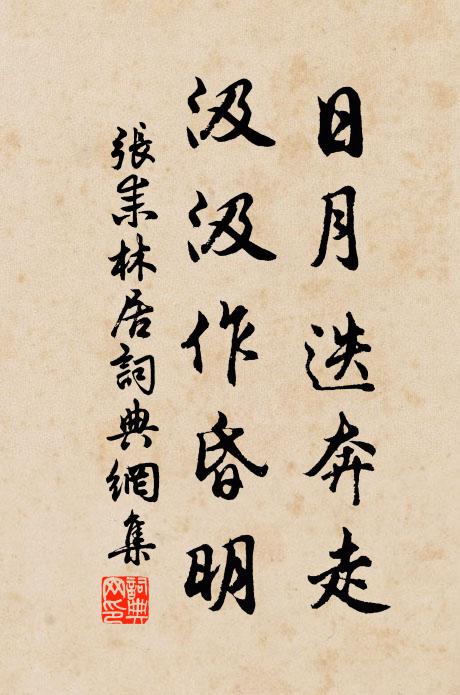 日月迭奔走
汲汲作昏明
張耒林居詞典網集
詞典網印